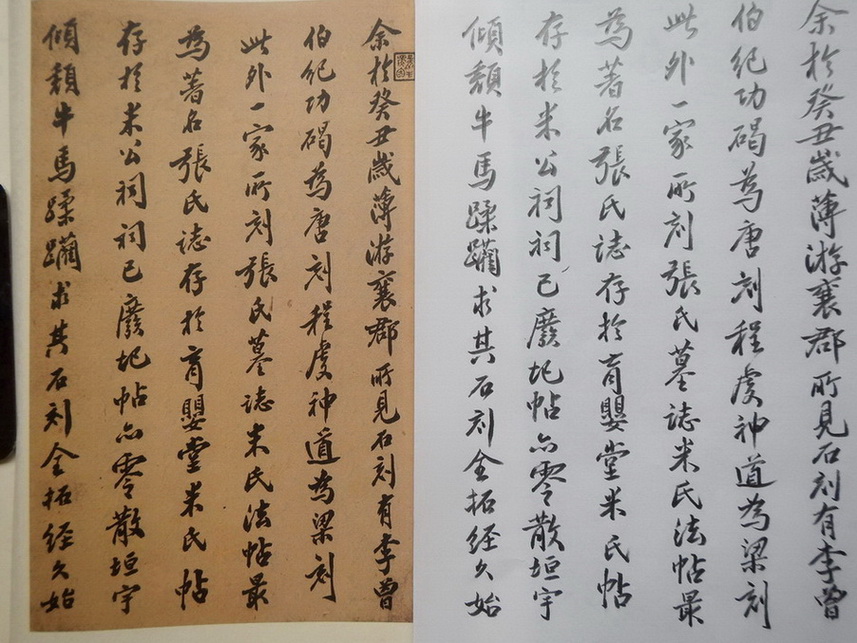 余於癸丑歲薄游襄郡所見石刻有李曾
伯紀功碣為唐刻程虔神道為梁刻
此外一家所刻張氏墓誌米氏法帖最
為著名張氏誌存於育嬰堂米氏帖
存於米公祠祠已廢圮帖亦零散垣宇
傾頹牛馬蹂躪求其石刻全拓經久始
余於癸丑歲薄游襄郡所見石刻有李曾
伯紀功碣為唐刻程虔神道為梁刻
此外一家所刻張氏墓誌米氏法帖最
為著名張氏誌存於育嬰堂米氏帖
存於米公祠祠已廢圮帖亦零散垣宇
傾頹牛馬蹂躪求其石刻全拓經久始